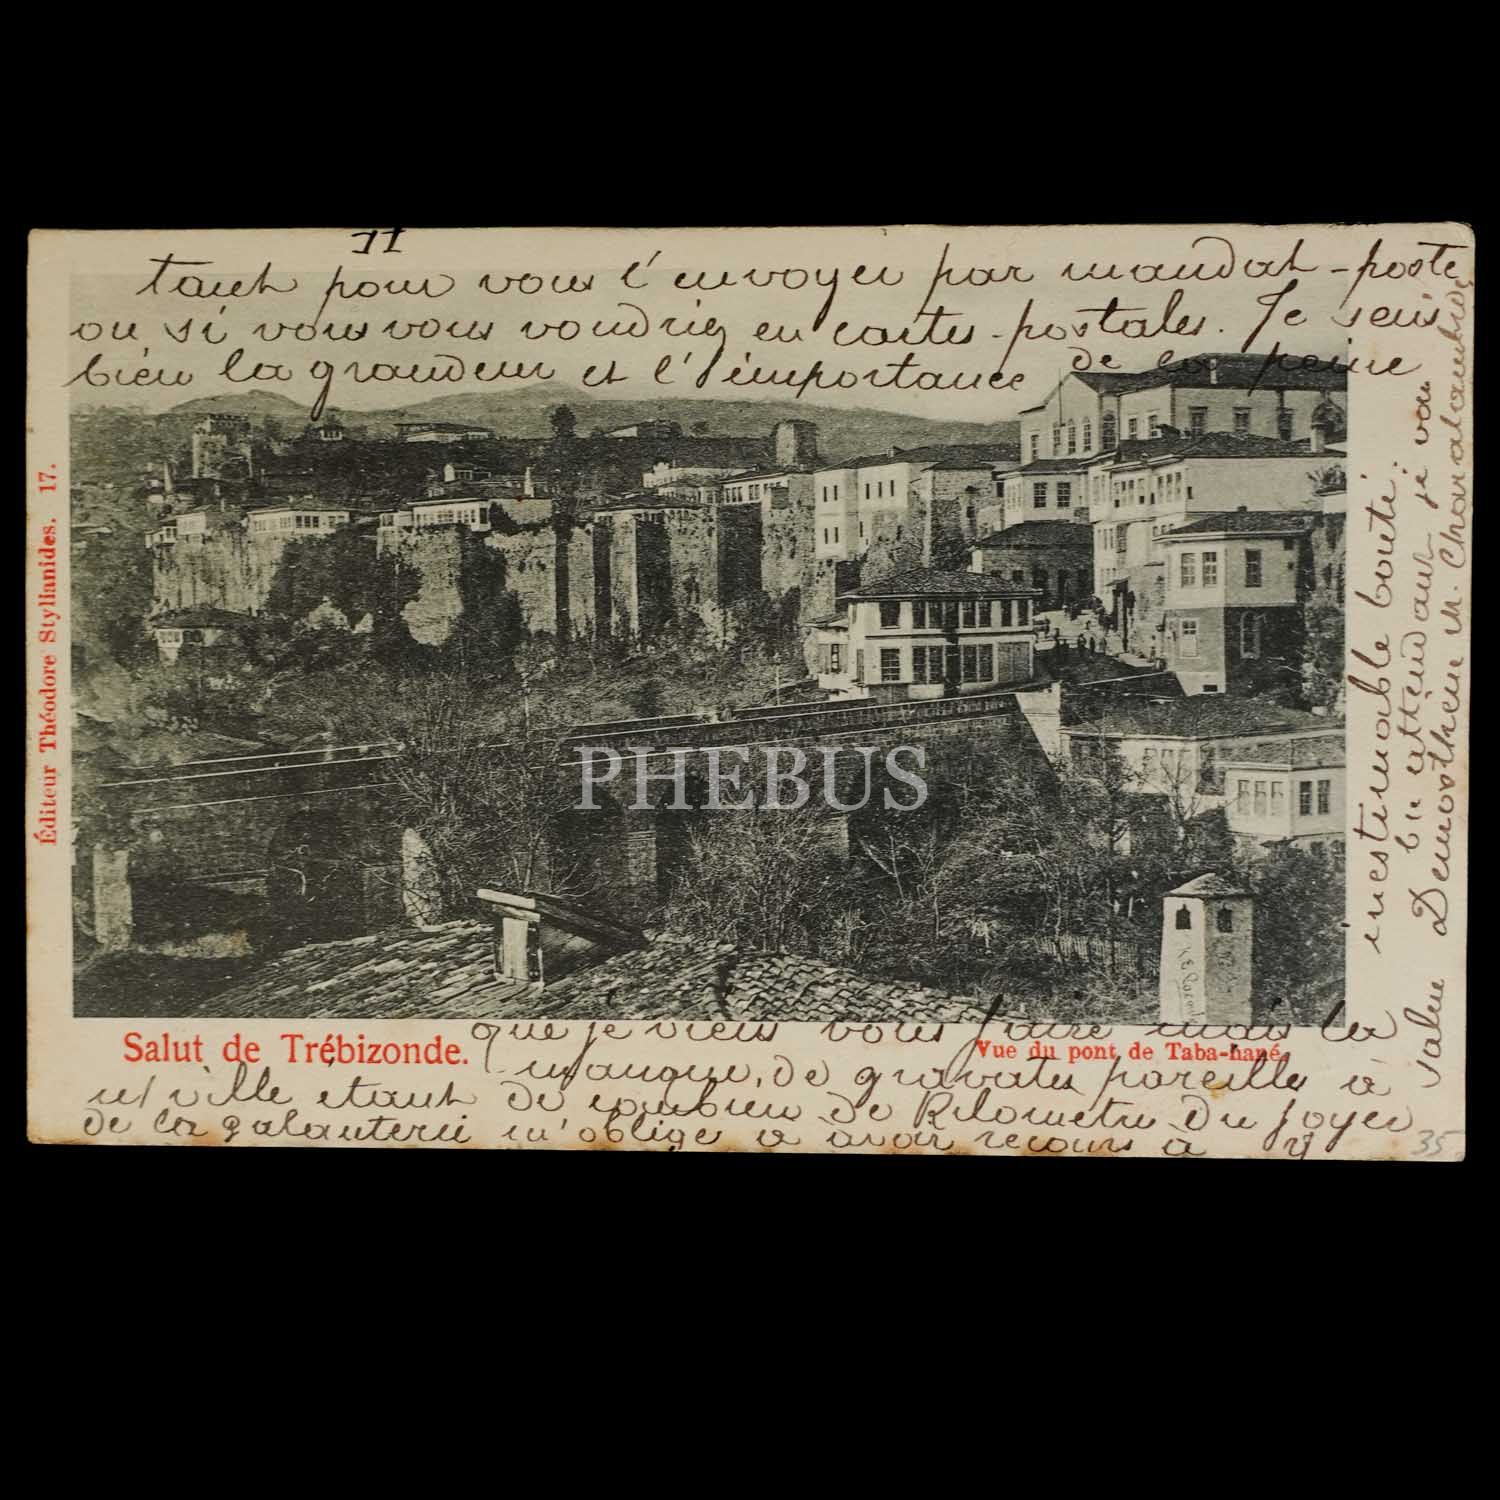 II
tant pour vous l'envoyer par mandat-poste
ou si vous vous voudriez en cartes-postales. Je sens
bien la grandeur et l'importance de la peine
que je viens vous faire mais la
manque, de gravates pareilles à
n/ ville étant de combien de Kilometre du foyer
de la galanterie m'oblige à avoir recours à v/
inestimable bonté;
En attendant je vous
salue Demosthene M. Charalambidès
Éditeur Théodore Stylianides. 17.
Salut de Trébizonde.
Vue du pont de Taba-hané.
PHEBUS
35